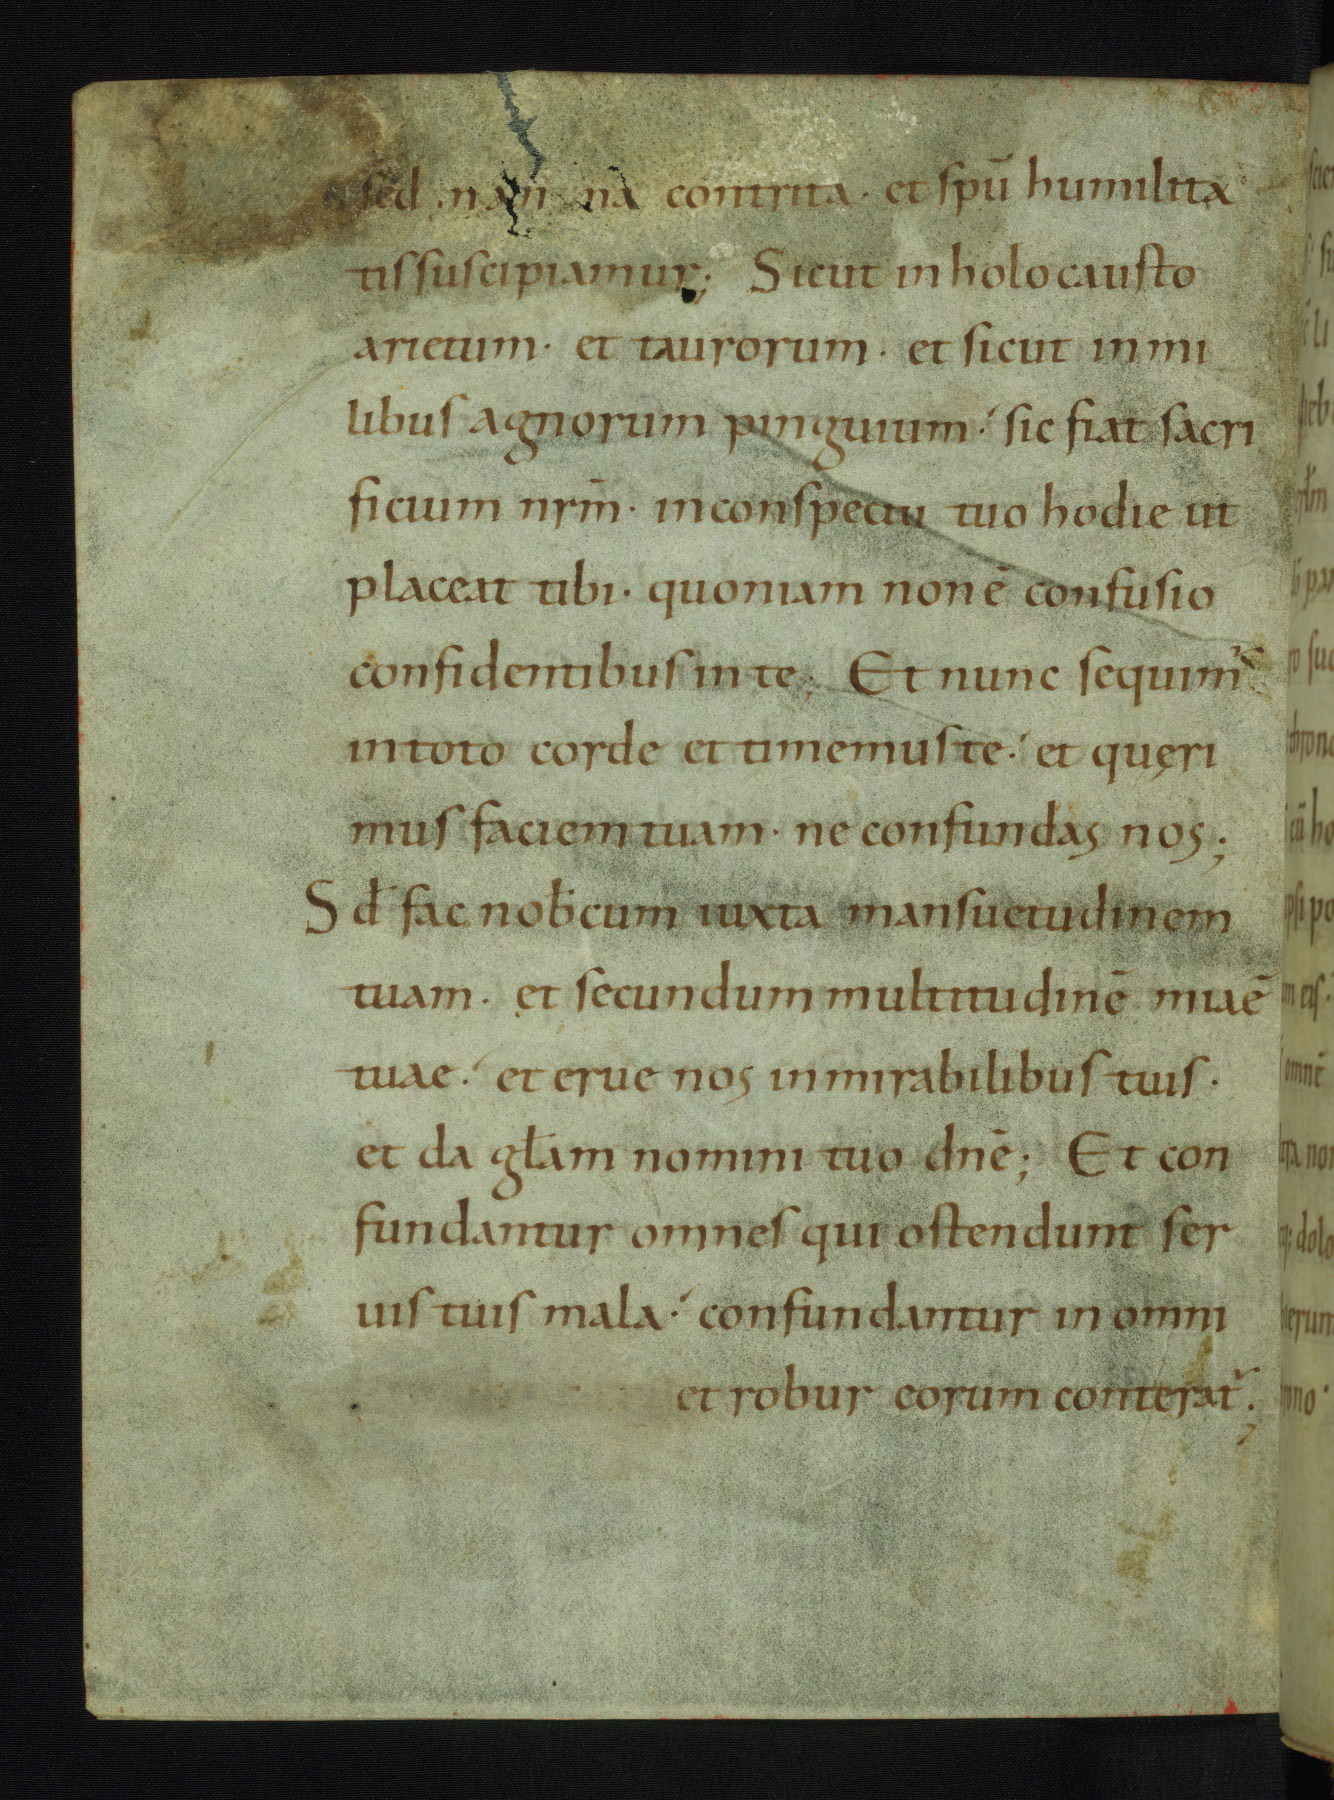 sed contrita · et spū humilita
tis suscipiamur; Sicut in holocausto
arietum · et taurorum · et sicut in mi
libus agnorum pinguium · sic fiat sacri
ficium nrm̄ · in conspectu tuo hodie ut
placeat tibi · quoniam non ē confusio
confidentibus in te; Et nunc sequim̃
in toto corde et timemus te · et quęri
mus faciem tuam · ne confundas nos;
Sđ fac nob̄cum iuxta mansuetudinem
tuam · et secundum multitudinē miāē
tuae · et erue nos in mirabilibus tuis ·
et da gl̄am nomini tuo dnē; Et con
fundantur omnes qui ostendunt ser
uis tuis mala · confundantur in omni
et robur eorum conterat̃;